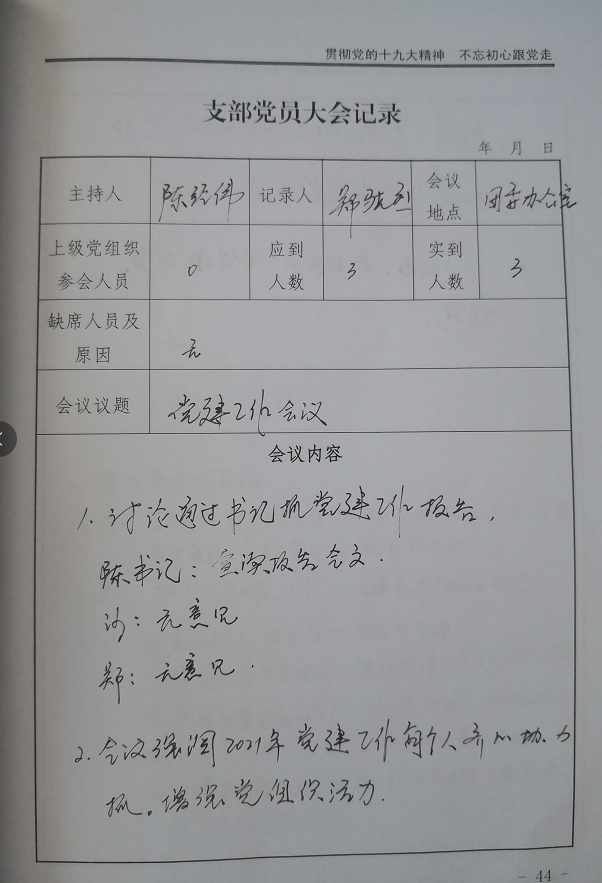 贯彻党的十九大精神 不忘初心跟党走
支部党员大会记录
年 月 日
主持人 陈 伟 记录人 郑 会议地点 团委办公室
上级党组织参会人员 0 应到人数 3 实到人数 3
缺席人员及原因 无
会议议题 党建工作会议
会议内容
1. 讨论通过书记抓党建工作报告,
陈书记: 宣读报告全文.
沙: 无意见
郑: 无意见.
2. 会议强调2021年党建工作每个人齐心协力
抓。增强党组织活力.
- 44 -